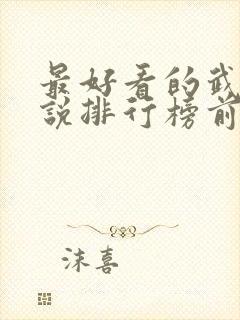 最好看的武
说排行榜前
沫喜